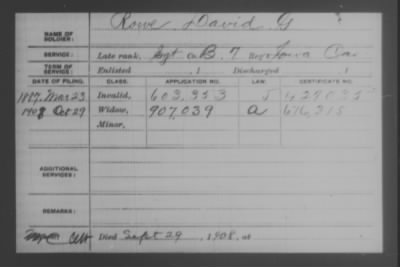 Rowe, David G
NAME OF SOLDIER:
SERVICE: Late rank, Sgt Co. B, 7 Reg't Iowa Cav
TERM OF SERVICE: Enlisted , 1 Discharged , 1
DATE OF FILING. CLASS. APPLICATION NO. LAW. CERTIFICATE NO.
1887, Mar 23 Invalid, 603,353 429035
1908 Oct 29 Widow, 907,039 a 676,315
Minor,
ADDITIONAL SERVICES:
REMARKS:
Died Sept 29, 1908, at